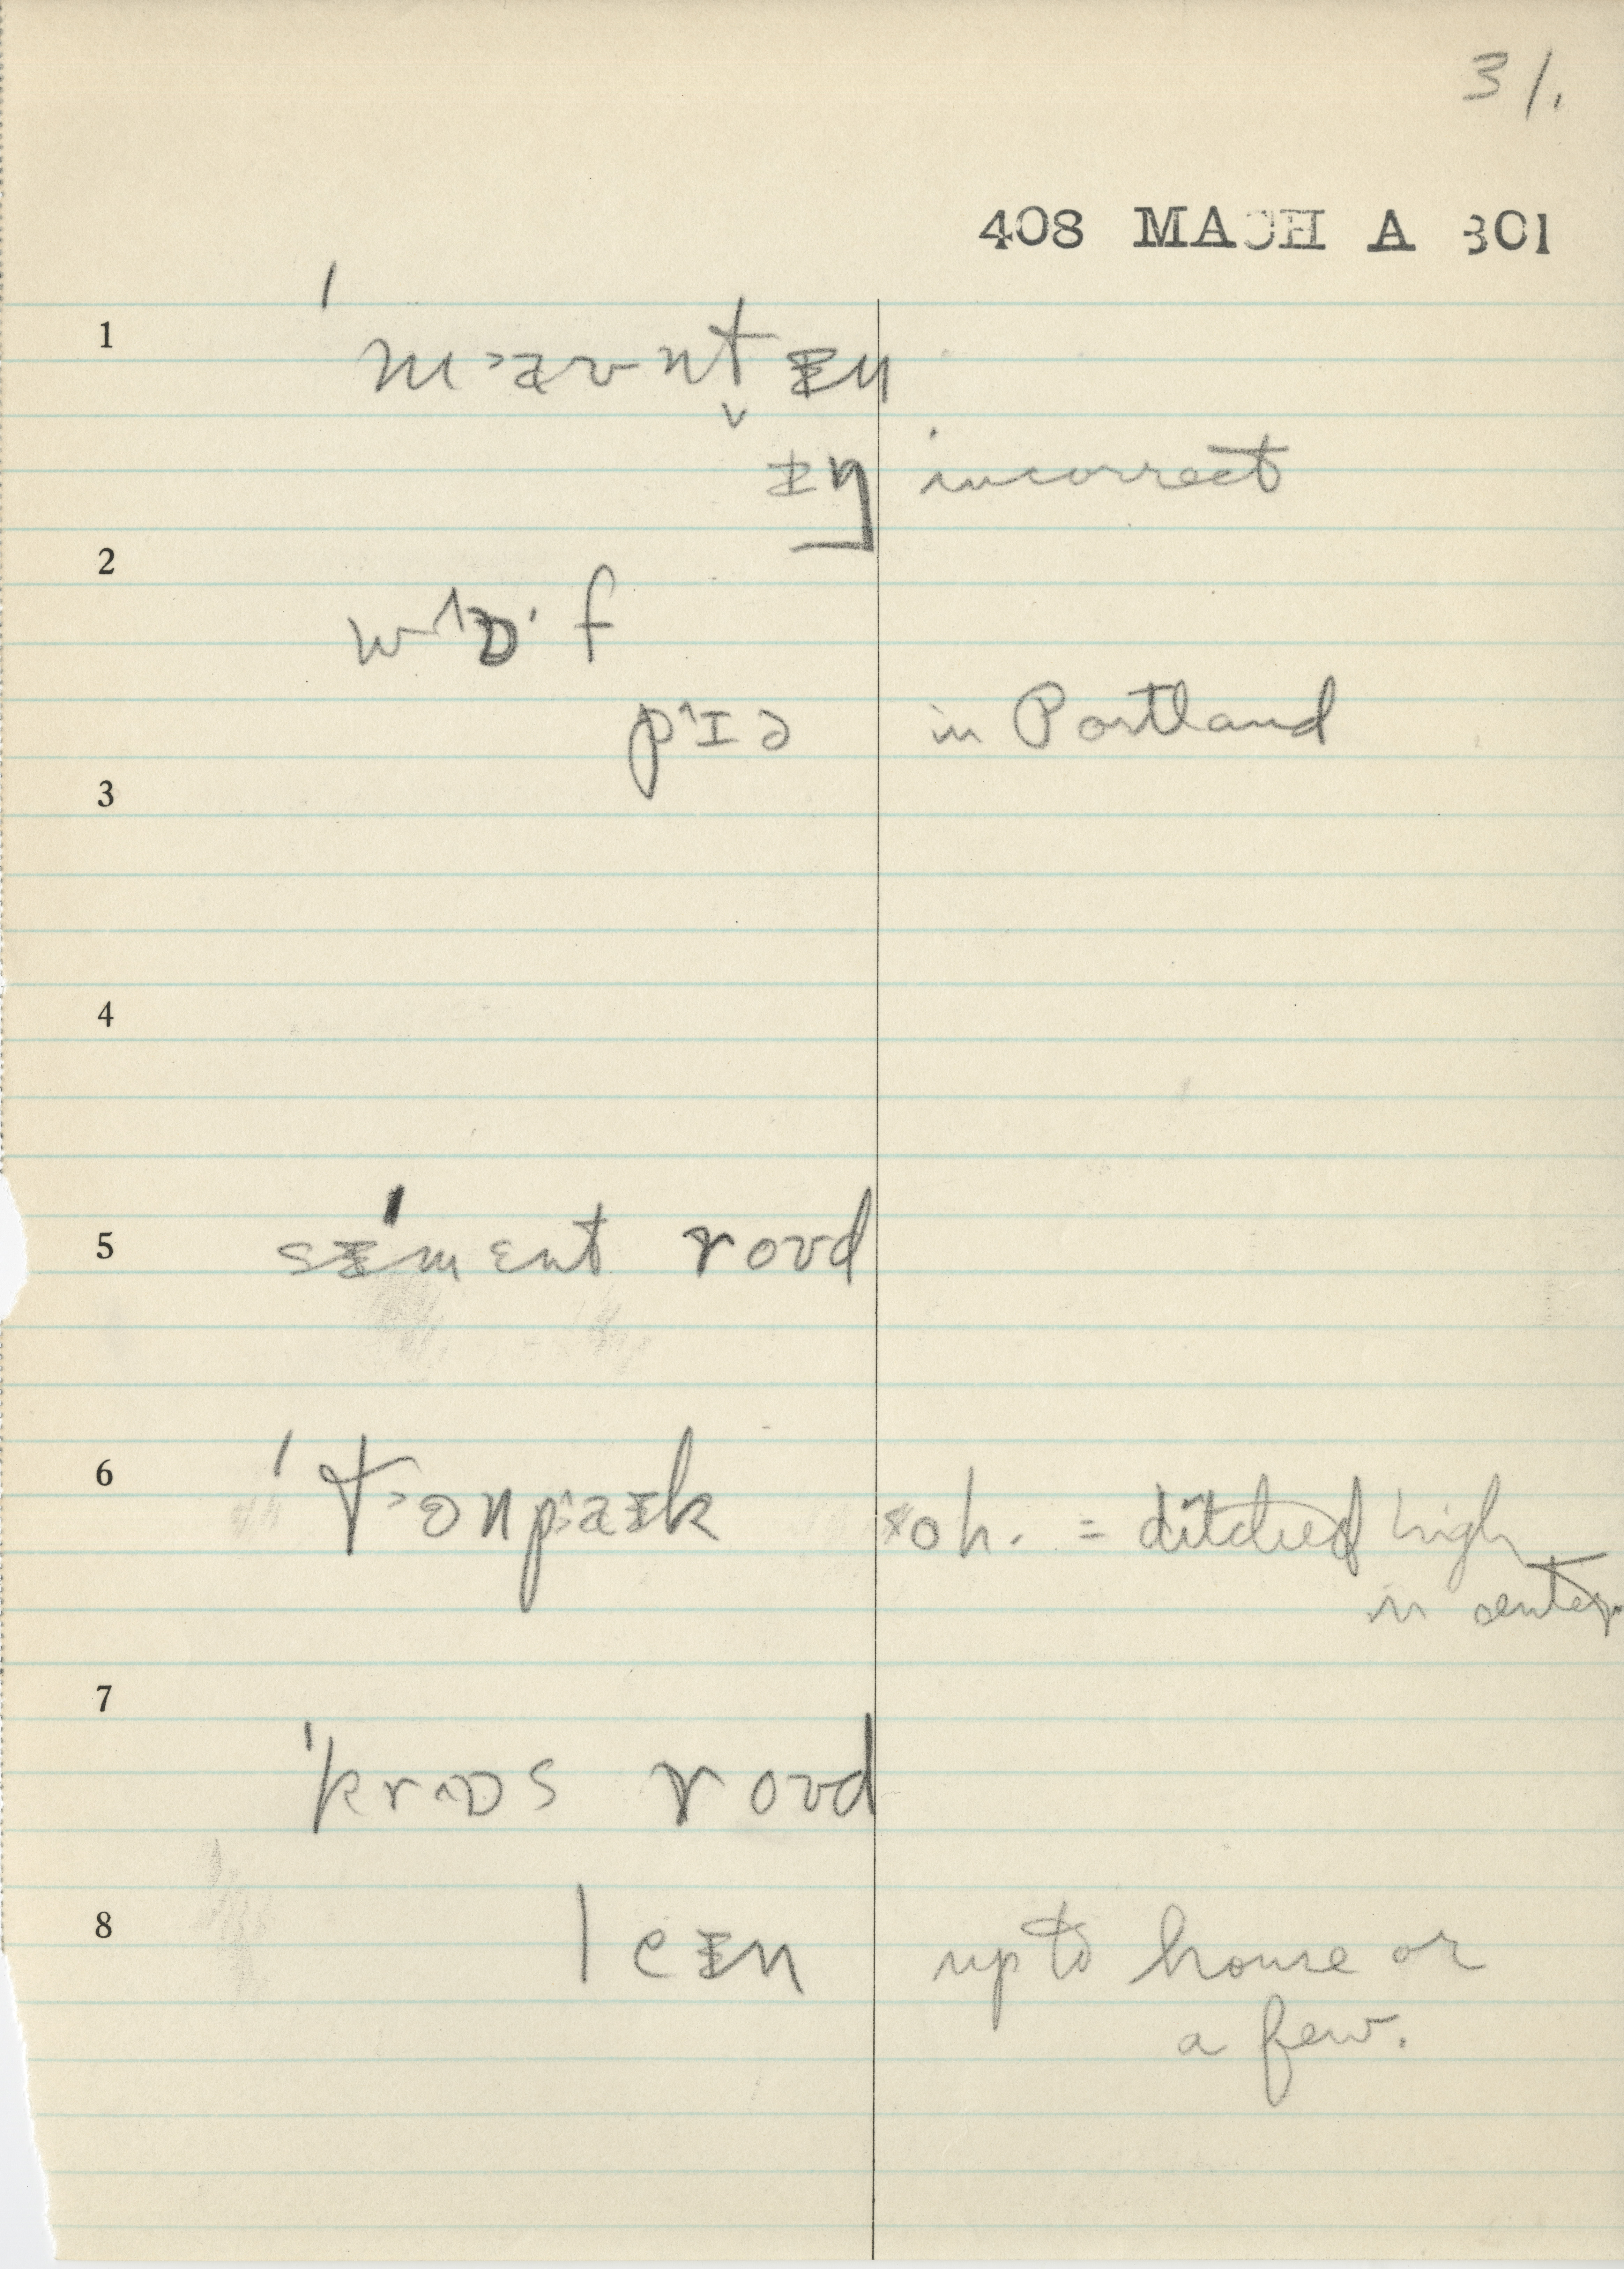 31.
408 MACH A 301
1
ˈm˃aʊnt̬ᵻn
ᵻŋ incorrect
2
w˄ɒ·f
p˄ɪə in Portland
3
4
5
sᵻˈmɛnt roʊd
6
ˈt˃ɜnp˄aᵻk *oh. = ditched high
in center
7
ˈkr˄ɒs roʊd
8
leᵻn up to house or
a few.